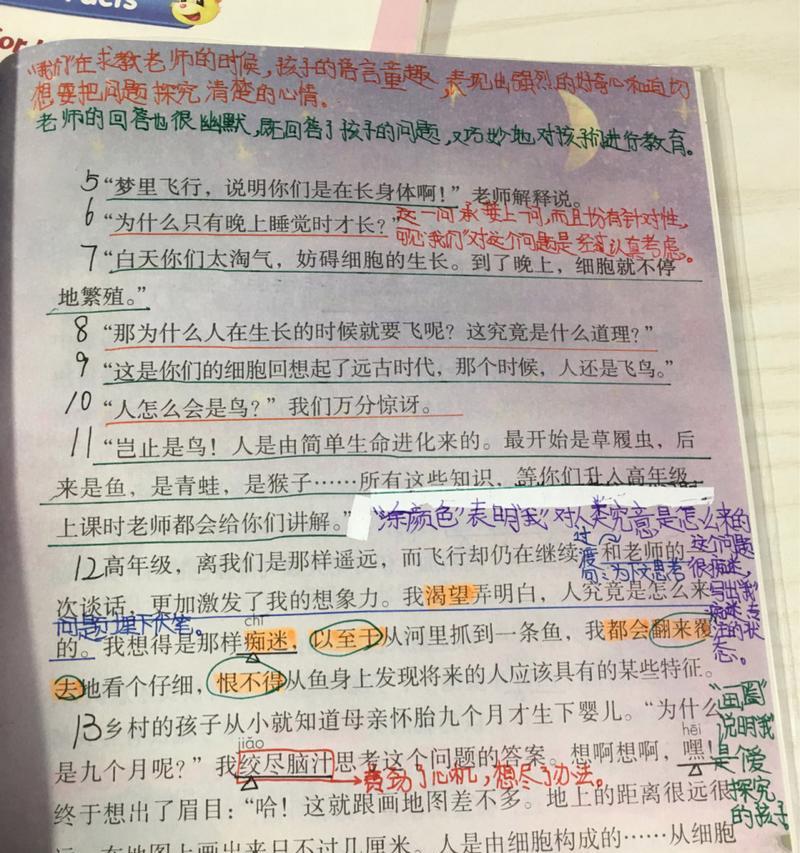 acts
for
"我们"在求教老师的时候,孩子的语言童趣,表现出强烈的好奇心和迫切
想要把问题探究清楚的心情。
老师的回答也很幽默,既回答了孩子的问题,又巧妙地对孩子们进行教育。
5 “梦里飞行,说明你们是在长身体啊!”老师解释说。
6 “为什么只有晚上睡觉时才长?”
这一问承接上一问,而且均有针对性,
可见"我们"对这个问题是经过认真考虑。
7 “白天你们太淘气,妨碍细胞的生长。到了晚上,细胞就不停
地繁殖。”
8 “那为什么人在生长的时候就要飞呢?这究竟是什么道理?”
9 “这是你们的细胞回想起了远古时代,那个时候,人还是飞鸟。”
10 “人怎么会是鸟?”我们万分惊讶。
11 “岂止是鸟!人是由简单生命进化来的。最开始是草履虫,后
来是鱼,是青蛙,是猴子……所有这些知识,等你们升入高年级
上课时老师都会给你们讲解。”
"涂颜色"表明"我"对人类究竟是怎么来的
这个问题
很痴迷,
写出"我"
痴迷
的状
态。
12 高年级,离我们是那样遥远,而飞行却仍在继续,和老师的
过渡
句:为下文思考
次谈话,更加激发了我的想象力。我渴望弄明白,人究竟是怎么来
问题埋下伏笔。
chī
的。我想得是那样痴迷,以至于从河里抓到一条鱼,我都会翻来覆
去地看个仔细,恨不得从鱼身上发现将来的人应该具有的某些特征。
13 乡村的孩子从小就知道母亲怀胎九个月才生下婴儿。“为什么
jiǎo
hēi
是九个月呢?”我绞尽脑汁思考这个问题的答案。想啊想啊,嘿!
费劲了心机,想尽了办法。
终于想出了眉目:“哈!这就跟画地图差不多。地上的距离很远很
远,在地图上画出来只不过几厘米。人是由细胞构成的……从细胞
"画圈"
说明"我"
是个爱
探究
的孩子